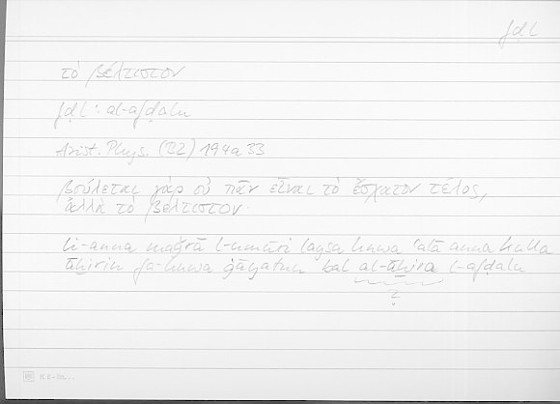 fḍl
τὸ βέλτιστον
fḍl : al-afḍalu
Arist. Phys. (II 2) 194a33
βούλεται γὰρ οὐ πᾶν εἶναι τὸ ἔσχατον τέλος,
ἀλλὰ τὸ βέλτιστον·
li-anna maǧrā l-umūri laysa huwa ʿalā anna kulla
āḫirin fa-huwa ġāyatun bal al-āḫira l-afḍalu
?